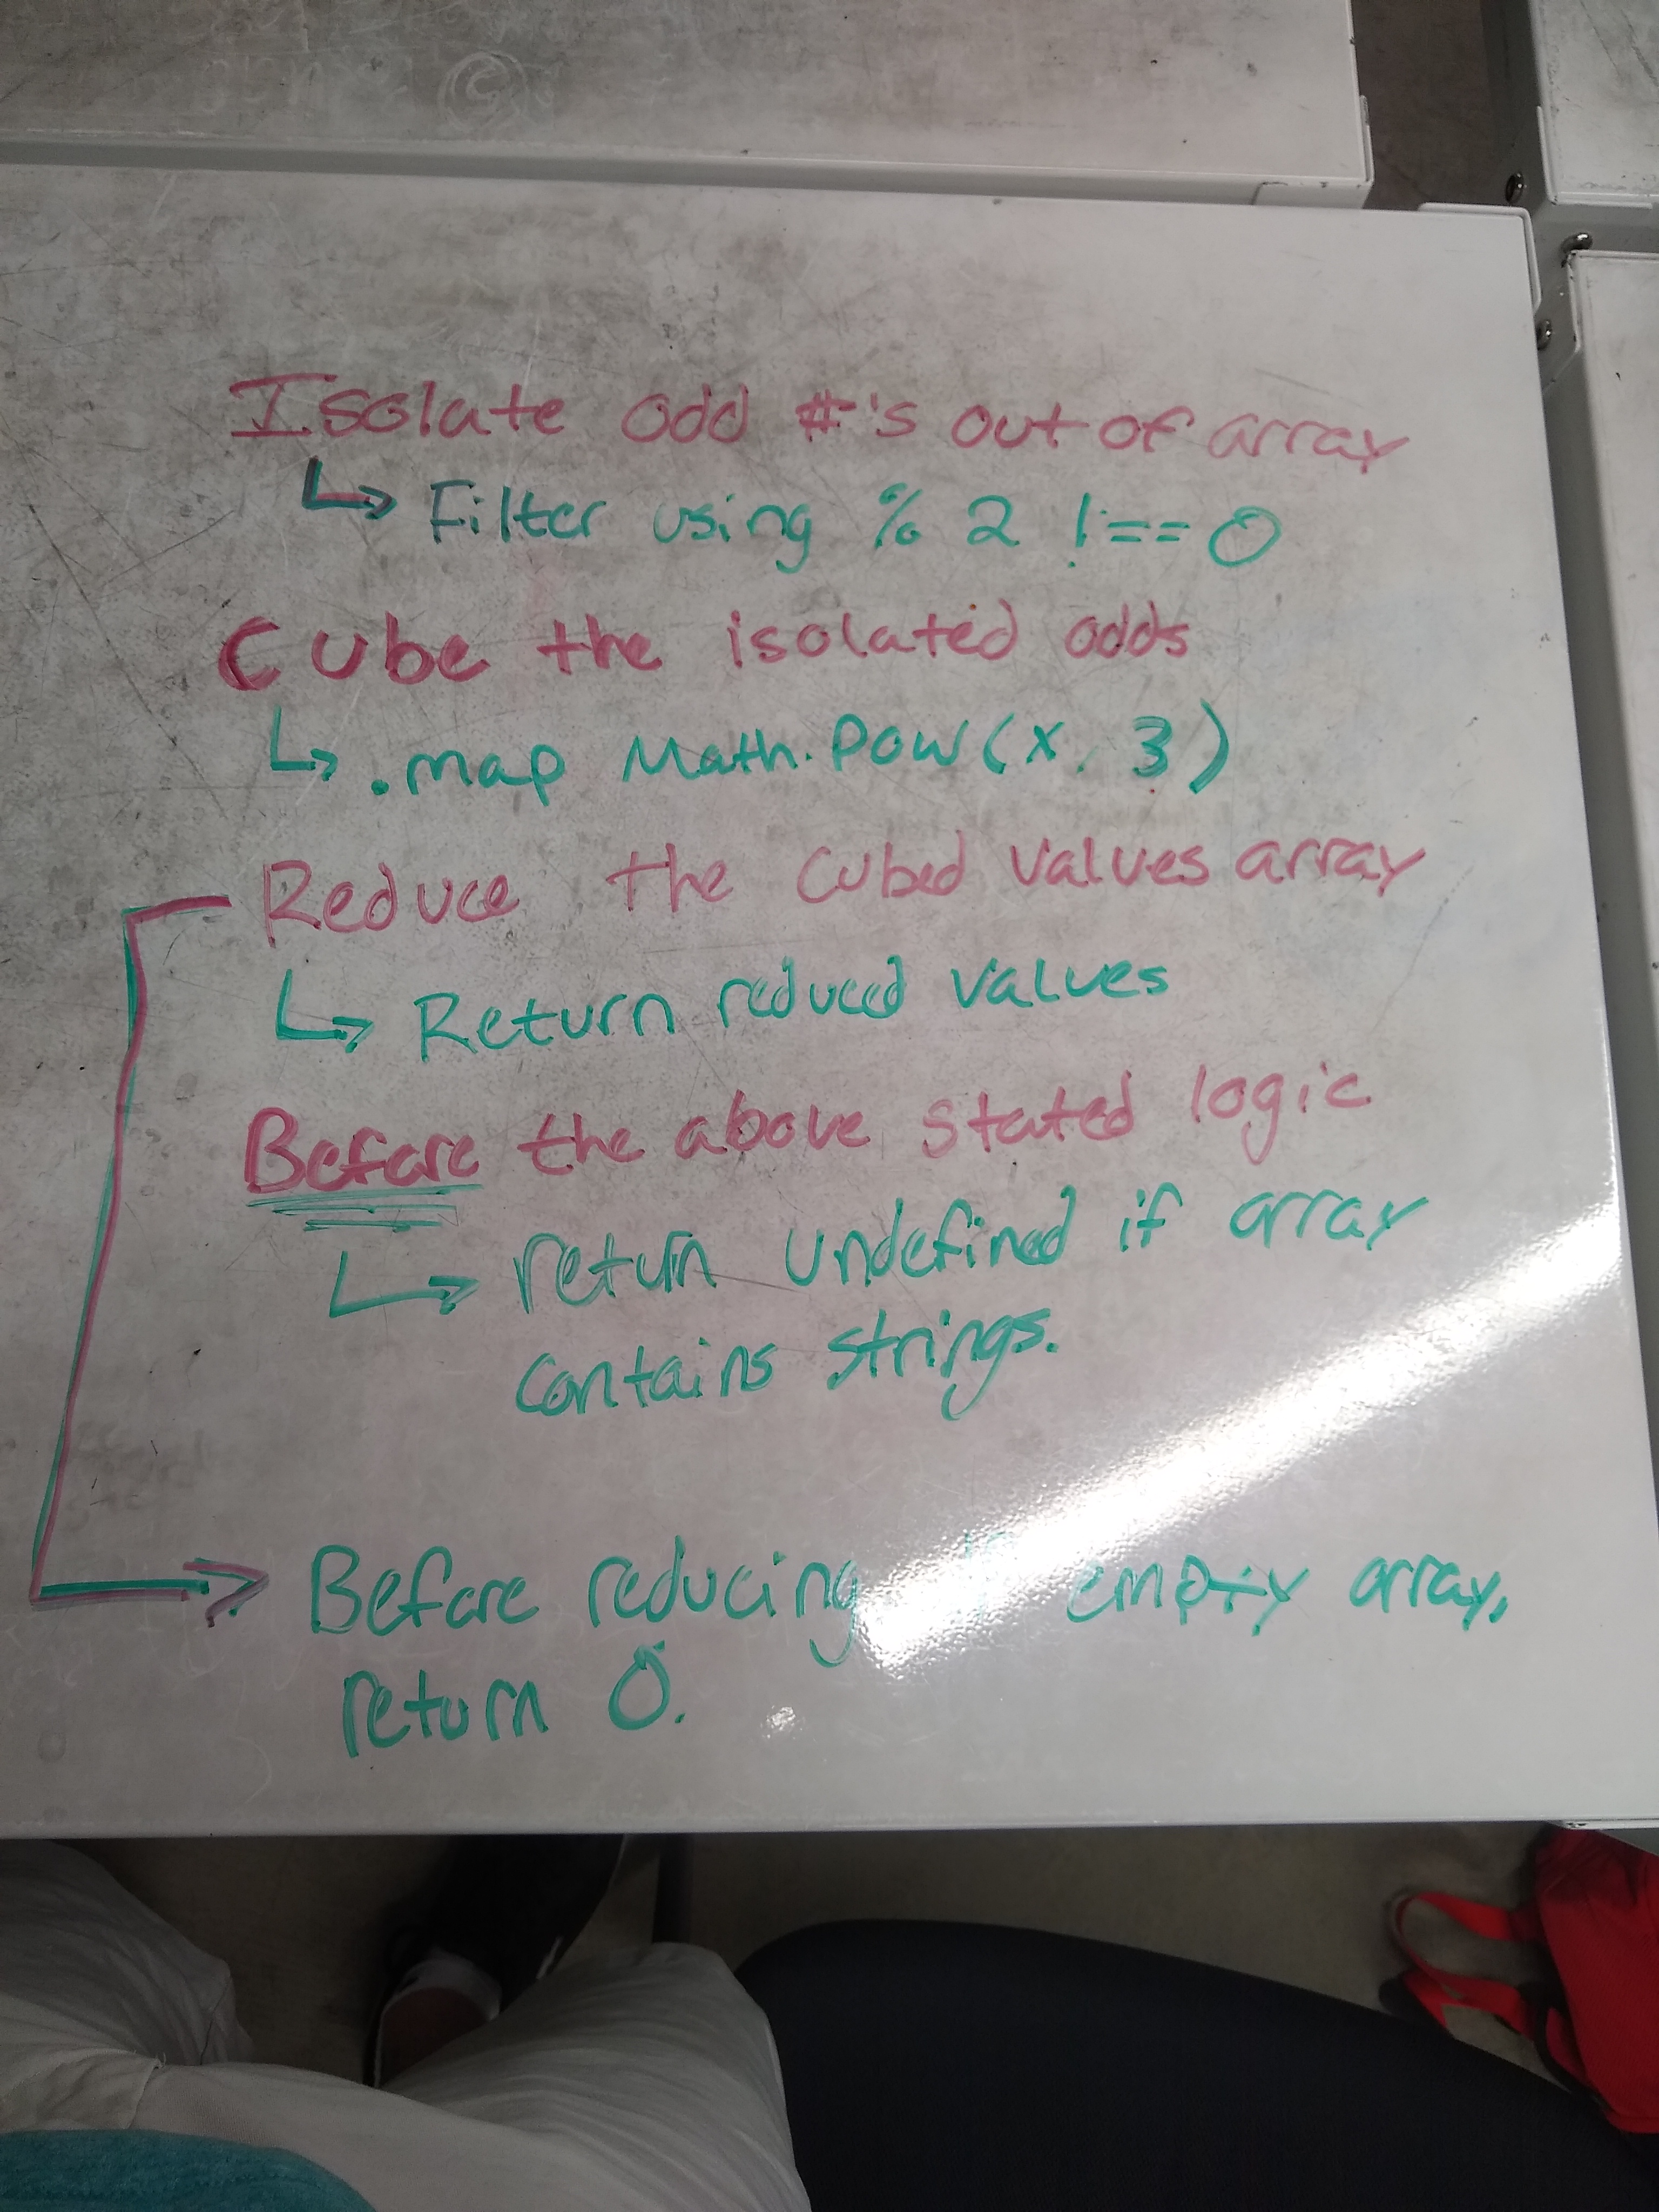 Isolate odd #'s out of array
Filter using % 2 !== 0
Cube the isolated odds
.map Math.Pow(x, 3)
Reduce the cubed values array
Return reduced values
Before the above stated logic
return undefined if array
contains strings.
Before reducing if empty array,
return 0.